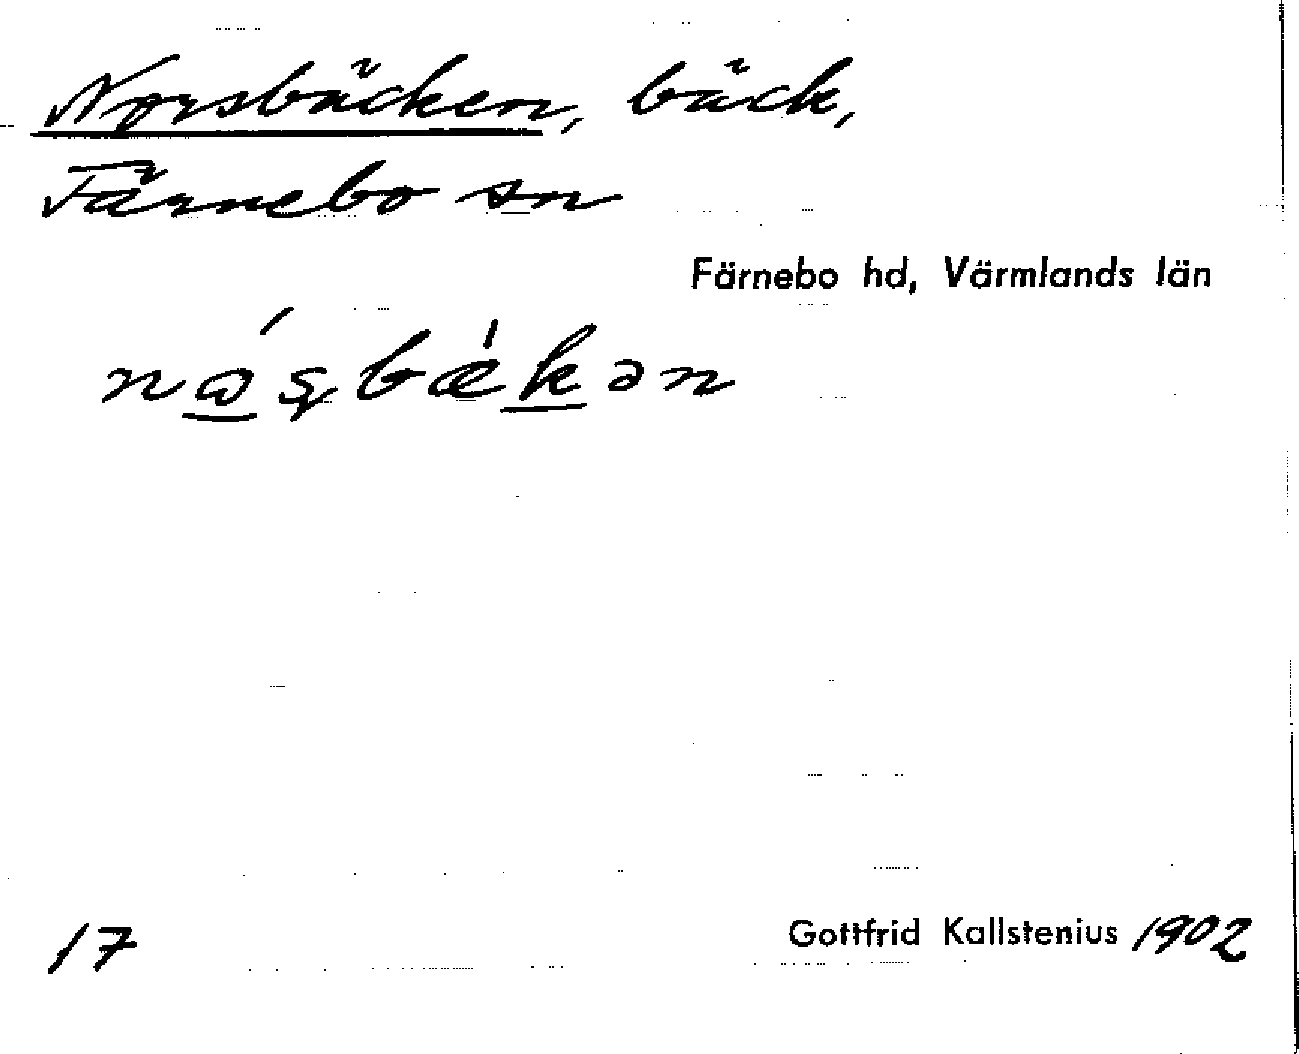 Norsbäcken, bäck,
Färnebo sn
Färnebo hd, Värmlands län
nǻʂbǽkən
17
Gottfrid Kallstenius 1902